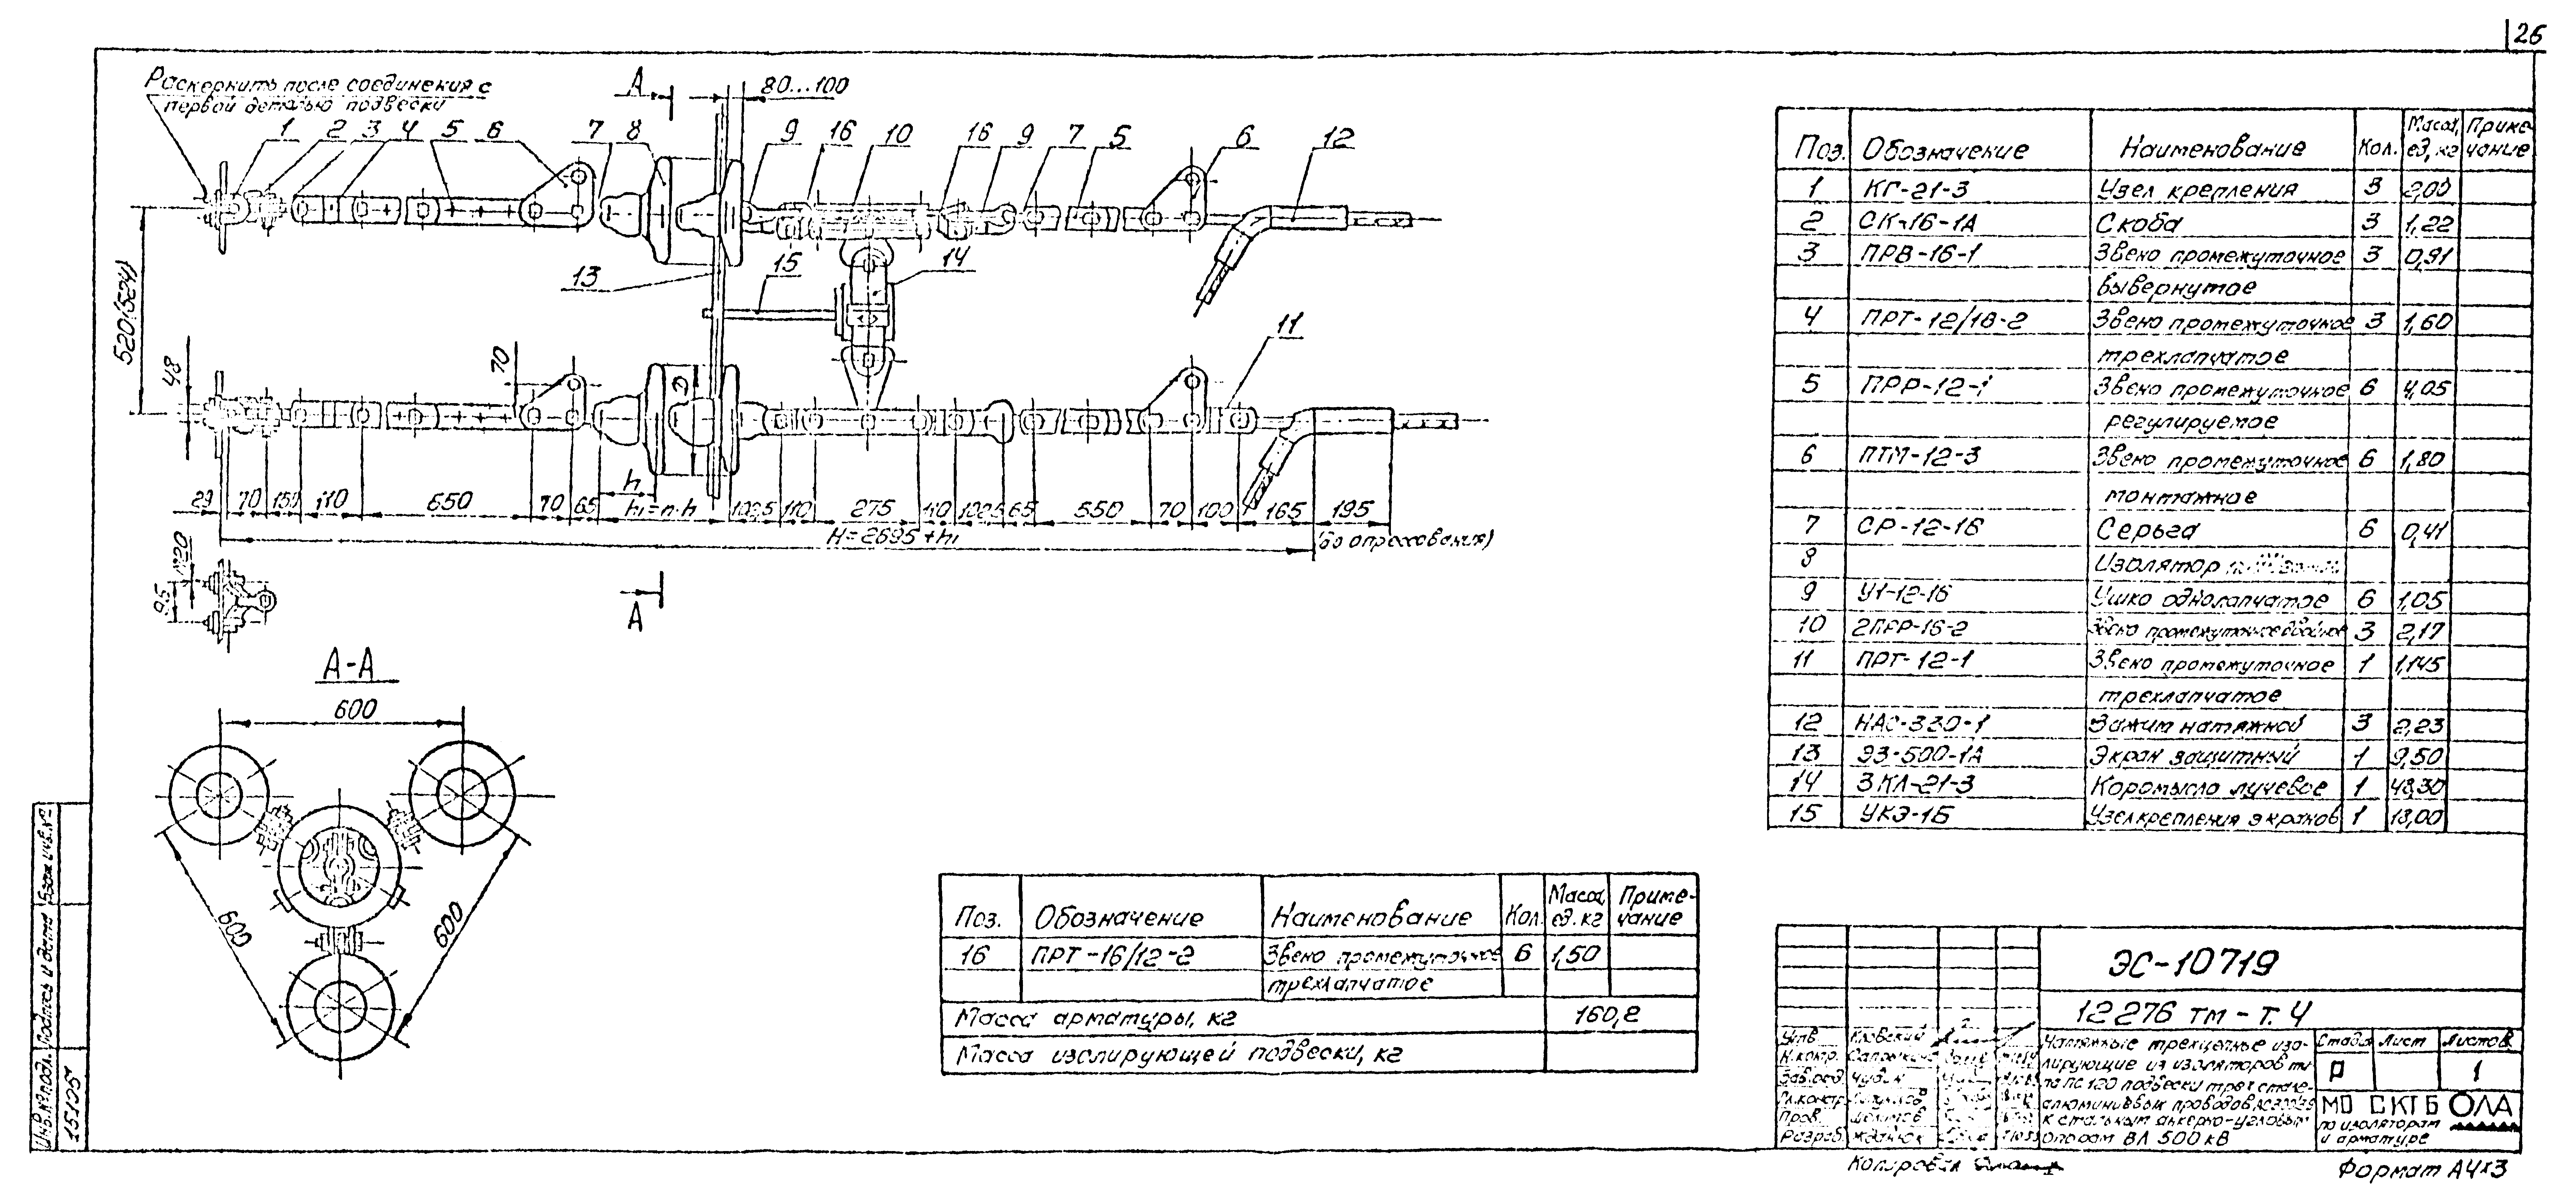 26
Раскернить после соединения с
первой деталью подвески
А
80...100
1 2 3 4 5 6 7 8 9 16 10 16 9 7 5 6 12
13 15 14
520(524)
11
48
70
h
29 70 150 110 650 70 65 h₁=n·h 102,5 110 275 110 102,5 65 550 70 100 165 195
H=2695+h₁
(до опрессования)
95
А
А-А
600
600
600
Поз. Обозначение Наименование Кол. Масса, ед, кг Приме-чание
1 КГ-21-3 Узел крепления 3 2,00
2 СК-16-1А Скоба 3 1,22
3 ПРВ-16-1 Звено промежуточное 3 0,91
вывернутое
4 ПРТ-12/16-2 Звено промежуточное 3 1,60
трехлапчатое
5 ПРР-12-1 Звено промежуточное 6 4,05
регулируемое
6 ПТМ-12-3 Звено промежуточное 6 1,80
монтажное
7 СР-12-16 Серьга 6 0,41
8 Изолятор
9 У1-12-16 Ушко однолапчатое 6 1,05
10 2ПРР-16-2 Звено промежуточное двойное 3 2,17
11 ПРТ-12-1 Звено промежуточное 1 1,145
трехлапчатое
12 НАС-330-1 Зажим натяжной 3 2,23
13 ЭЗ-500-1А Экран защитный 1 9,50
14 3КЛ-21-3 Коромысло лучевое 1 48,30
15 УКЭ-1Б Узел крепления экранов 1 13,00
Поз. Обозначение Наименование Кол. Масса, ед. кг Приме-чание
16 ПРТ-16/12-2 Звено промежуточное 6 1,50
трехлапчатое
Масса арматуры, кг 160,2
Масса изолирующей подвески, кг
ЭС-10719
12276 тм - т. 4
Утв.
Н.контр.
Зав.отд. Чудин
Гл.констр.
Пров.
Разраб.
Натяжные трехцепные изо-
лирующие из изоляторов ти-
па ПС 120 подвески трех стале-
алюминиевых проводов АС 330/39
к стальным анкерно-угловым
опорам ВЛ 500 кВ
Стадия Лист Листов
Р 1
МО СКТБ ОЛА
по изоляторам
и арматуре
Инв.№подл. Подпись и дата Взам.инв.№
15105
Копировал
Формат А4х3